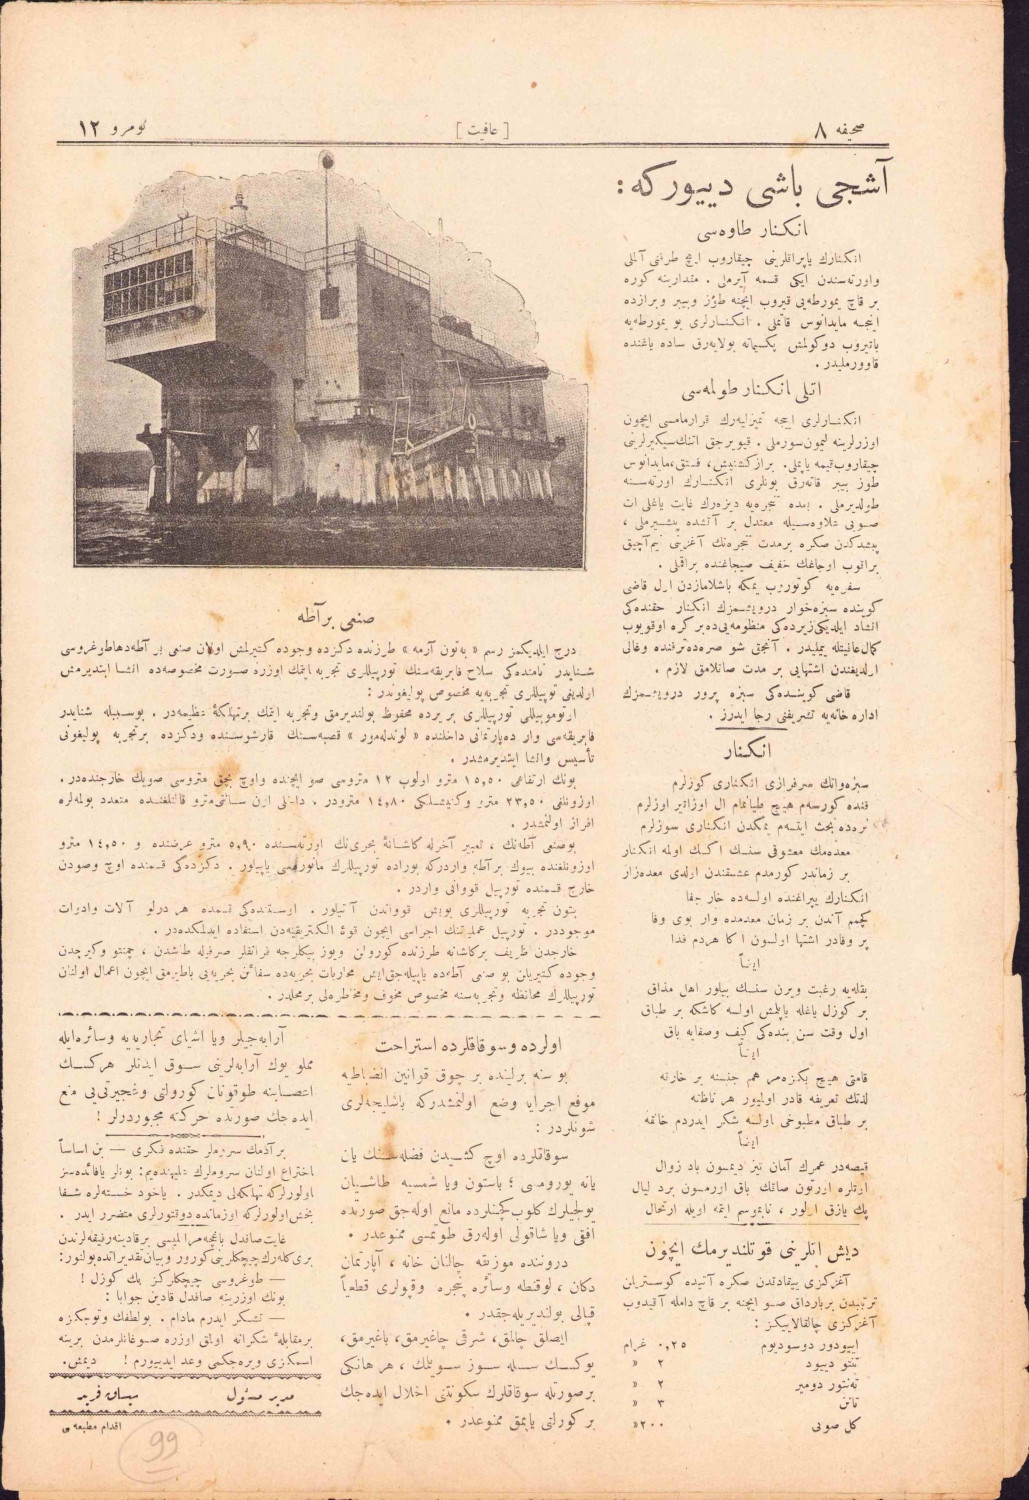 صحیفه ٨
[ عافیت ]
نومرو ١٢
آشجی باشی دییورکه :
انکنار طاوه‌سی
انکنارك یاپراقلرینی چیقاروب ایچ طرفنی آلملی
واورته‌سندن ایکی قسمه آیرملی . مقدارینه کوره
بر قاچ یمورطه‌یی قیروب ایچنه طوز وبیبر وبرازده
اینجه مایدانوس قاتملی . انکنارلری بو یمورطه‌یه
باتیروب دوکولمش پکسماته بولایه‌رق ساده یاغنده
قاوورملیدر .
اتلی انکنار طولمه‌سی
انکنارلری اییجه تمیزلیه‌رك قرارمامسی ایچون
اوزرلرینه لیمون سورملی . قیویرجق اتنك سیکیرلرینی
چیقاروب قیمه یاپملی . براز کشنیش ، فستق ، مایدانوس
طوز بیبر قاته‌رق بونلری انکنارك اورته‌سنه
طولدیرملی . بعده تنجره‌یه دیزه‌رك غایت یاغلی ات
صویی علاوه‌سیله معتدل بر آتشده پیشیرملی ،
پیشدکدن صکره برمدت تنجره‌نك آغزینی نیم آچیق
براقوب اوجاغك خفیف صیجاغنده براقملی .
سفره‌یه کوتوروب یمکه باشلامازدن اول قاضی
کوینده سبزه‌خوار درویشمزك انکنار حقنده‌کی
انشاد ایلدیکی زیرده‌کی منظومه‌یی ده بر کره اوقویوب
کمال عافیتله یملیدر . آنجق شو صره‌ده ترفنده وغالی
اولدیغندن اشتهایی بر مدت صاقلامق لازم .
قاضی کوینده‌کی سبزه پرور درویشمزك
اداره خانه‌یه تشریفنی رجا ایدرز .
انکنار
سبزه‌واتك سرفرازی انکناری کوزلرم
قنده کورسه‌م هیچ طیانمام ال اوزاتیر اوزلرم
نره‌ده بحث ایتسه‌م یمکدن انکناری سوزلرم
معده‌مك معشوقی سنسك اکسك اولمه انکنار
بر زماندر کورمدم عشقندن اولدی معده‌زار
انکنارك یپراغنده اولسه‌ده خار جفا
کچمم آندن بر زمان معده‌مده وار بوی وفا
پر وفادر اشتها اولسون اکا هردم فدا
ایضاً
بقله‌یه رغبت ویرن سنسك بیلور اهل مذاق
بر کوزل یاغله یاپلمش اولسه کاشکه بر طباق
اول وقت سن بنده‌کی کیف وصفایه باق
ایضاً
قامتی هیچ بکزه‌مز هم جنسنه بر خارقه
لذتك تعریفه قادر اولیور هر ناطقه
بر طباق مطبوخی اولسه شکر ایدردم خالقه
ایضاً
قیصه‌در عمرك آمان تیز دیمسون باد زوال
پك یازق اولور ، تابموسم ایتمه اویله ارتحال
دیش اتلرینی قوتلندیرمك ایچون
آغزکزی ییقادقدن صکره آتیده کوستریلن
ترتیبدن بر بارداق صو ایچنه بر قاچ دامله آقیدوب
آغزکزی چالقالاییکز :
اییودور دوسودیوم ٠,٢٥ غرام
تنتو دییود ٢ «
ته‌نتور دومیر ٢ «
تانن ٣ «
کل صویی ٢٠٠ «
صنعی بر آطه
درج ایلدیکمز رسم « به‌تون آرمه » طرزنده دکزده وجوده کتیرلمش اولان صنعی بر آطه‌ در دها طوغروسی
شنایدر نامنده‌کی سلاح فابریقه‌سنك تورپیللری تجربه ایتمك اوزره صورت مخصوصه‌ده انشا ایتدیرمش
اولدیغی تورپیللری تجربه‌یه مخصوص پولیغوندر :
اوتوموبیللی تورپیللری بر یرده محفوظ بولندیرمق وتجربه ایتمك بر تهلکهٔ عظیمه‌در . بوسببله شنایدر
فابریقه‌سی وار ده‌پارتمانی داخلنده « لوندله‌مور » قصبه‌سنك قارشوسنده ودکزده بر تجربه پولیغونی
تأسیس وانشا ایتدیرمشدر .
بونك ارتفاعی ١٥,٥٠ مترو اولوب ١٢ متروسی صو ایچنده واوچ بچق متروسی صویك خارجنده‌در .
اوزونلغی ٢٣,٥٠ مترو وکنیشلکی ١٤,٨٠ مترودر . داخلی اون سانتی‌مترو قالنلغنده متعدد بولمه‌لره
افراز اولنمشدر .
بوصنعی آطه‌نك ، تعبیر آخرله کاشانهٔ بحری‌نك اورته‌سنده ٥,٩٠ مترو عرضنده و ١٤,٥٠ مترو
اوزونلغنده بیوك بر آطه واردرکه بوراده تورپیللرك مانوره‌سی یاپیلور . دکزده‌کی قسمنده اوچ وصودن
خارج قسمنده تورپیل قووانی واردر .
بتون تجربه تورپیللری بوبش قوواندن آتیلور . اوستنده‌کی قسمده هر درلو آلات وادوات
موجوددر . تورپیل عملیاتنك اجراسی ایچون قوهٔ الکتریقیه‌دن استفاده ایدلمکده‌در .
خارجدن ظریف بر کاشانه طرزنده کورولن ویوز بیکلرجه فرانقلر صرفیله طاشدن ، چمنتو وکیرچدن
وجوده کتیریلن بو صنعی آطه‌ده یاپیله‌جق ایش محاربات بحریه‌ده سفائن بحریه‌یی باطیرمق ایچون اعمال اولنان
تورپیللرك محافظه وتجربه‌سنه مخصوص مخوف ومخاطره‌لی بر محلدر .
اولرده وسوقاقلرده استراحت
بو سنه برلینده بر چوق قوانین انضباطیه
موقع اجرایه وضع اولنمشدرکه باشلیجه‌لری
شونلردر :
سوقاقلرده اوچ کشیدن فضله‌سنك یان
یانه یورومسی ؛ باستون ویا شمسیه طاشیان
یولجیلرك کلوب کچنلرده مانع اوله‌جق صورتده
افقی ویا شاقولی اوله‌رق طوتمسی ممنوعدر .
دروننده موزیقه چالنان خانه ، آپارتمان
دکان ، لوقنطه وسائره پنجره وقپولری قطعیاً
قپالی بولندیریله‌جقدر .
ایصلق چالمق ، شرقی چاغیرمق ، باغیرمق ،
یوکسك سسله سوز سویلمك ، هر هانکی
بر صورتله سوقاقلرك سکونتنی اخلال ایده‌جك
بر کورلتی یاپمق ممنوعدر .
آرابه‌جیلر ویا اشیای تجاریه‌یه وسائره ایله
مملو یوك آرابه‌لرینی سوق ایدنلر هرکسك
اعصابنه طوقونان کورولتی وغجیرتی‌یی منع
ایده‌جك صورتده حرکته مجبوردرلر !
بر آدمك سروملر حقنده فکری — بن اساساً
اختراع اولنان سروملرك علیهنده‌یم : بونلر یا فائده‌سز
اولورلرکه تهلکه‌لی دیمکدر . یاخود خسته‌لره شفا
بخش اولورلرکه اوزمانده دوقتورلری متضرر ایدر .
غایت صافدل باغچه مراقلیسی بر قادینه رفیقه‌لرندن
بری کله‌رك چیچکلرینی کورور وبیان تقدیراتده بولنور :
— طوغروسی چیچکلرکز پك کوزل !
بونك اوزرینه صافدل قادین جواباً :
— تشکر ایدرم مادام . بولطفك ونوجکزه
بر مقابلهٔ شکرانه اولمق اوزره صوغانلرمدن برینه
اسمکزی ویره‌جکمی وعد ایدییورم ! دیمش .
مدیر مسئول
اقدام مطبعه‌سی
99